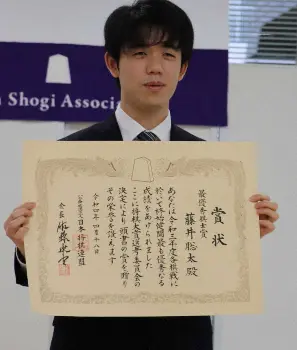 Shogi Associa
賞状
最優秀棋士賞
藤井聡太殿
あなたは令和三年度各棋戦に
於いて終始健闘最も優秀なる
成績をあげられました
ここに将棋大賞選考委員会の
決定により頭書の賞を贈り
その栄誉を讃えます
令和四年四月十八日
公益社団法人日本将棋連盟
会長